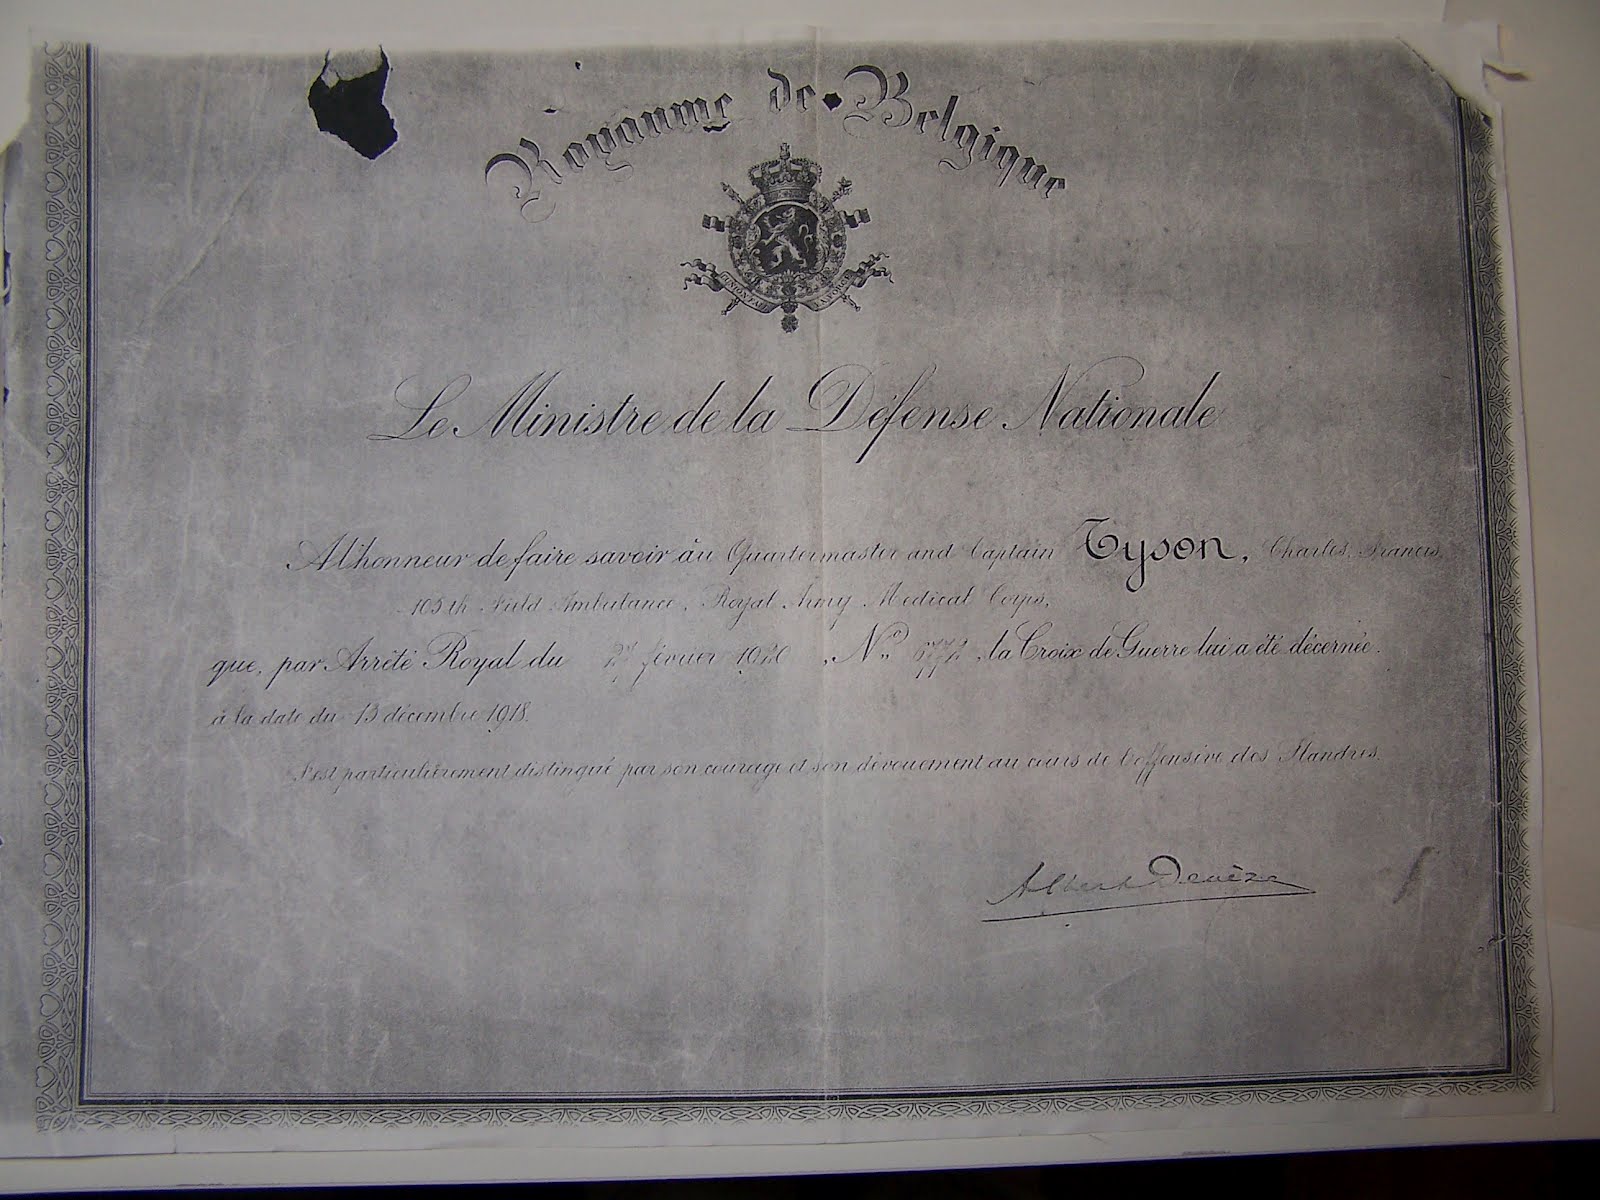 Royaume de Belgique
L'UNION FAIT LA FORCE
Le Ministre de la Défense Nationale
A l'honneur de faire savoir au Quartermaster and Captain Tyson, Charles, Francis,
105th Field Ambulance, Royal Army Medical Corps,
que, par Arrêté Royal du février 1920, No , la Croix de Guerre lui a été décernée.
à la date du 13 décembre 1918.
S'est particulièrement distingué par son courage et son dévouement au cours de l'offensive des Flandres.
Albert Devèze